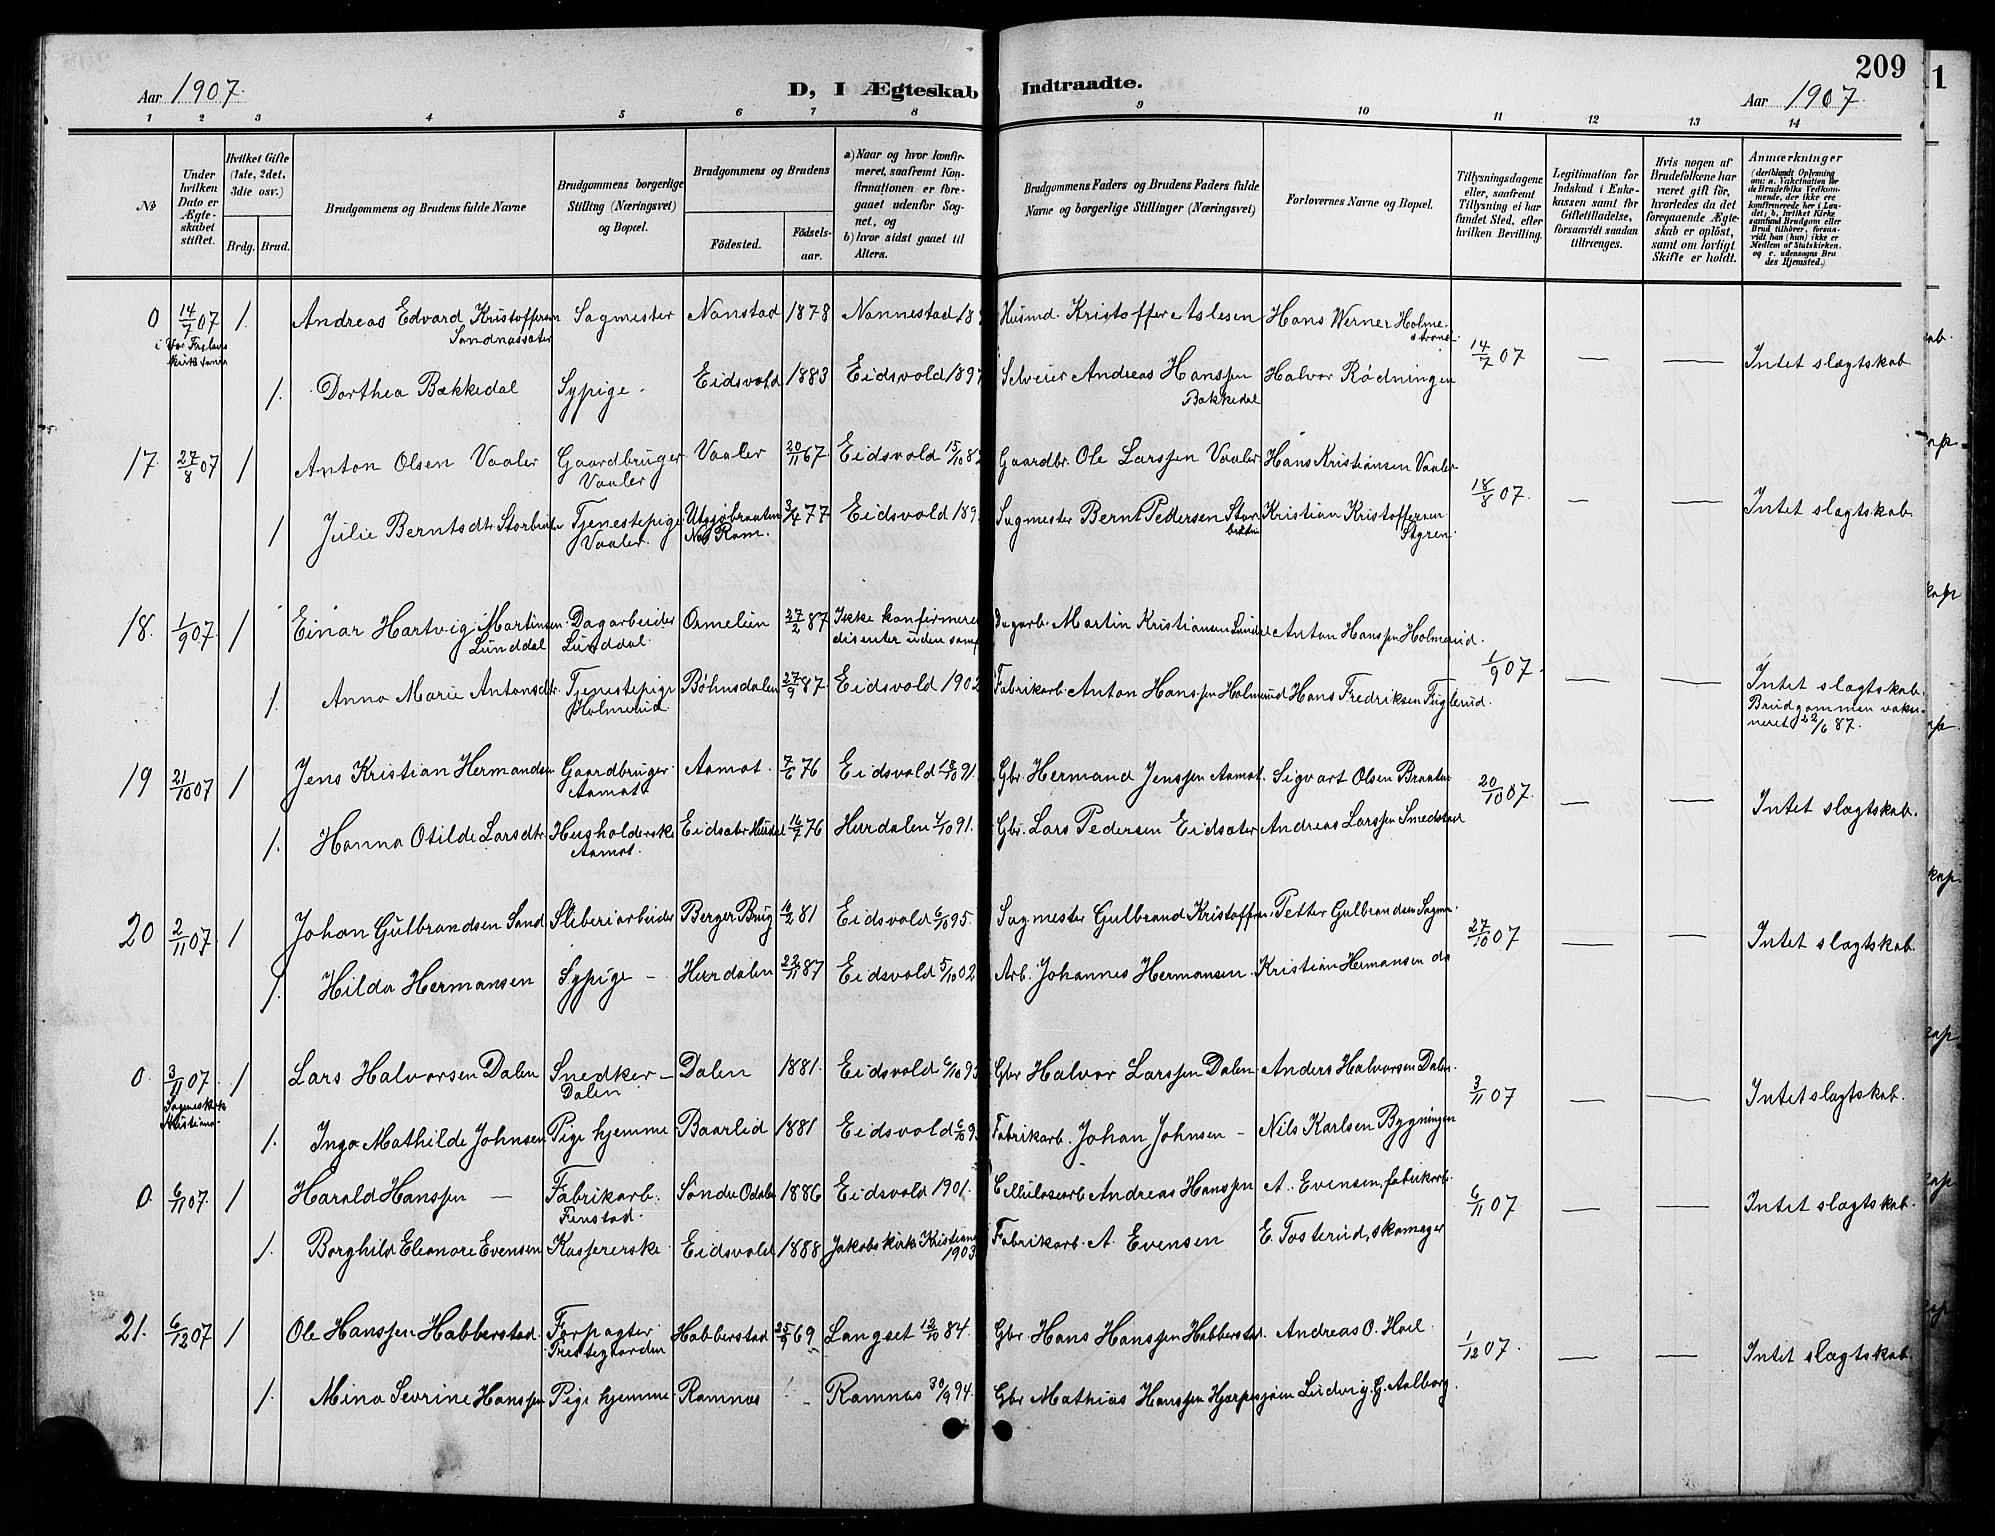 209
Aar 1907.
D, I Ægteskab Indtraadte.
Aar 1907.
1 2 3 4 5 6 7 8 9 10 11 12 13 14
No
Under hvilken Dato er Ægteskabet stiftet.
Hvilket Gifte (1ste, 2det, 3die osv.)
Brdg. Brud.
Brudgommens og Brudens fulde Navne
Brudgommens borgerlige Stilling (Næringsvei) og Bopæl.
Brudgommens og Brudens
Födested. Födselsaar.
a) Naar og hvor konfirmeret, saafremt Konfirmationen er foregaaet udenfor Sognet, og
b) hvor sidst gaaet til Alters.
Brudgommens Faders og Brudens Faders fulde Navne og borgerlige Stillinger (Næringsvei)
Forlovernes Navne og Bopæl.
Tillysningsdagene eller, saafremt Tillysning ei har fundet Sted, efter hvilken Bevilling.
Legitimation for Indskud i Enkekassen samt for Giftetilladelse, forsaavidt saadan tiltrænges.
Hvis nogen af Brudefolkene har været gift før, hvorledes da det foregaaende Ægteskab er oplöst, samt om lovligt Skifte er holdt.
Anmærkninger (deriblandt Oplysning om: a. Vakcination for de Brudefolks Vedkommende, der ikke ere konfirmerede her i Landet; b. hvilket Kirkesamfund Brudgom eller Brud tilhörer, forsaavidt han (hun) ikke er Medlem af Statskirken. og c. udensogns Brudes Hjemsted.)
0 14/7 07 1. Andreas Edvard Kristoffersen Sagmester Nanstad 1878 Nannestad Husmd. Kristoffer Aslesen Hans Werner Holmestrand 14/7 07 — — Intet slægtskab
1. Dorthea Bækkedal Sypige. Eidsvold 1883 Eidsvold 1897 Selveier Andreas Hanssen Bækkedal Halvor Rødningen
17 27/8 07 1 Anton Olsen Vaaler Gaardbruger Vaaler Vaaler 20/11 67 Eidsvold 15/10 82 Gaardbr. Ole Larssen Vaaler Hans Kristiansen Vaaler 18/8 07. — — Intet slagtskab.
1 Julie Berntsdtr Tjenestepige Vaaler. 3/4 77 Eidsvold Sagmester Bernt Pedersen Kristian Kristoffersen Styren
18. 1/9 07 1 Einar Hartvig Martinsen Lunddal Dagarbeider Lunddal. Ormelien 27/2 87 Ikke konfirmeret Dagarb. Martin Kristiansen Anton Hanssen Holmerud. 1/9 07. — — Intet slagtskab. Brudgommen vaksineret 22/6 87.
1. Anna Marie Antonsdtr. Tjenestepige Holmerud Bøhnsdalen 27/9 87. Eidsvold 1902 Fabrikarb. Anton Hanssen Holmerud Hans Fredriksen Fuglerud.
19 21/10 07 1 Jens Kristian Hermandsen Gaardbruger Aamot Aamot. 7/6 76 Eidsvold 18/10 91. Gbr Hermand Jenssen Aamot. Sigvart Olsen Braaten 20/10 07. — — Intet slagtskab.
1. Hanna Otilde Larsdtr. Husholderske Aamot. Eidsater Hurdal 16/7 76 Hurdalen 4/10 91. Gbr. Lars Pedersen Eidsæter Andreas Larssen Smedstad
20 2/11 07. 1 Johan Gulbrandsen Sand Sliberiarbeider Berger Brug 81 Eidsvold 6/10 95. Sagmester Gulbrand Kristoffersen Petter Gulbrandsen 27/10 07 — — Intet slagtskab.
1. Hilda Hermansen Sypige — Hurdalen 22/11 87 Eidsvold 5/10 02 Arb. Johannes Hermansen. Kristian Hermansen do
0. 3/11 07. 1 Lars Halvorsen Dalen Snedker — Dalen Dalen 1881. Eidsvold 6/10 95 Gbr Halvor Larssen Dalen Anders Halvorsen Dalen. 3/11 07 — — Intet slagtskab.
1. Inga Mathilde Johnsen Pige hjemme Baarlid 1881 Eidsvold 6/10 95 Fabrikarb. Johan Johnsen — Nils Karlsen Bygningen
0. 6/11 07. 1 Harald Hanssen — Fabrikarb. Finstad. Søndre Odalen 1886 Eidsvold 1901. Cellulosearb Andreas Hanssen A. Evensen, fabrikarb. 6/11 07 — — Intet slagtskab.
1. Borghild Eleonore Evensen Kaspererske. Eidsvold 1888 Jakobs kirke Kristiania 1903 Fabrikarb. A. Evensen E. Tosterud, skomager
21. 6/12 07 1 Ole Hanssen Habberstad. Forpagter Prestegaarden Habberstad 25/9 69 Langset 12/10 84. Gbr. Hans Hanssen Habberstad. Andreas O. Hoel. 1/12 07. — — Intet slægtskab.
1. Mina Sevrine Hanssen Pige hjemme Ramnæs - Ramnæs 30/9 94. Gbr Mathias Hanssen Ludvig G. Aalborg.